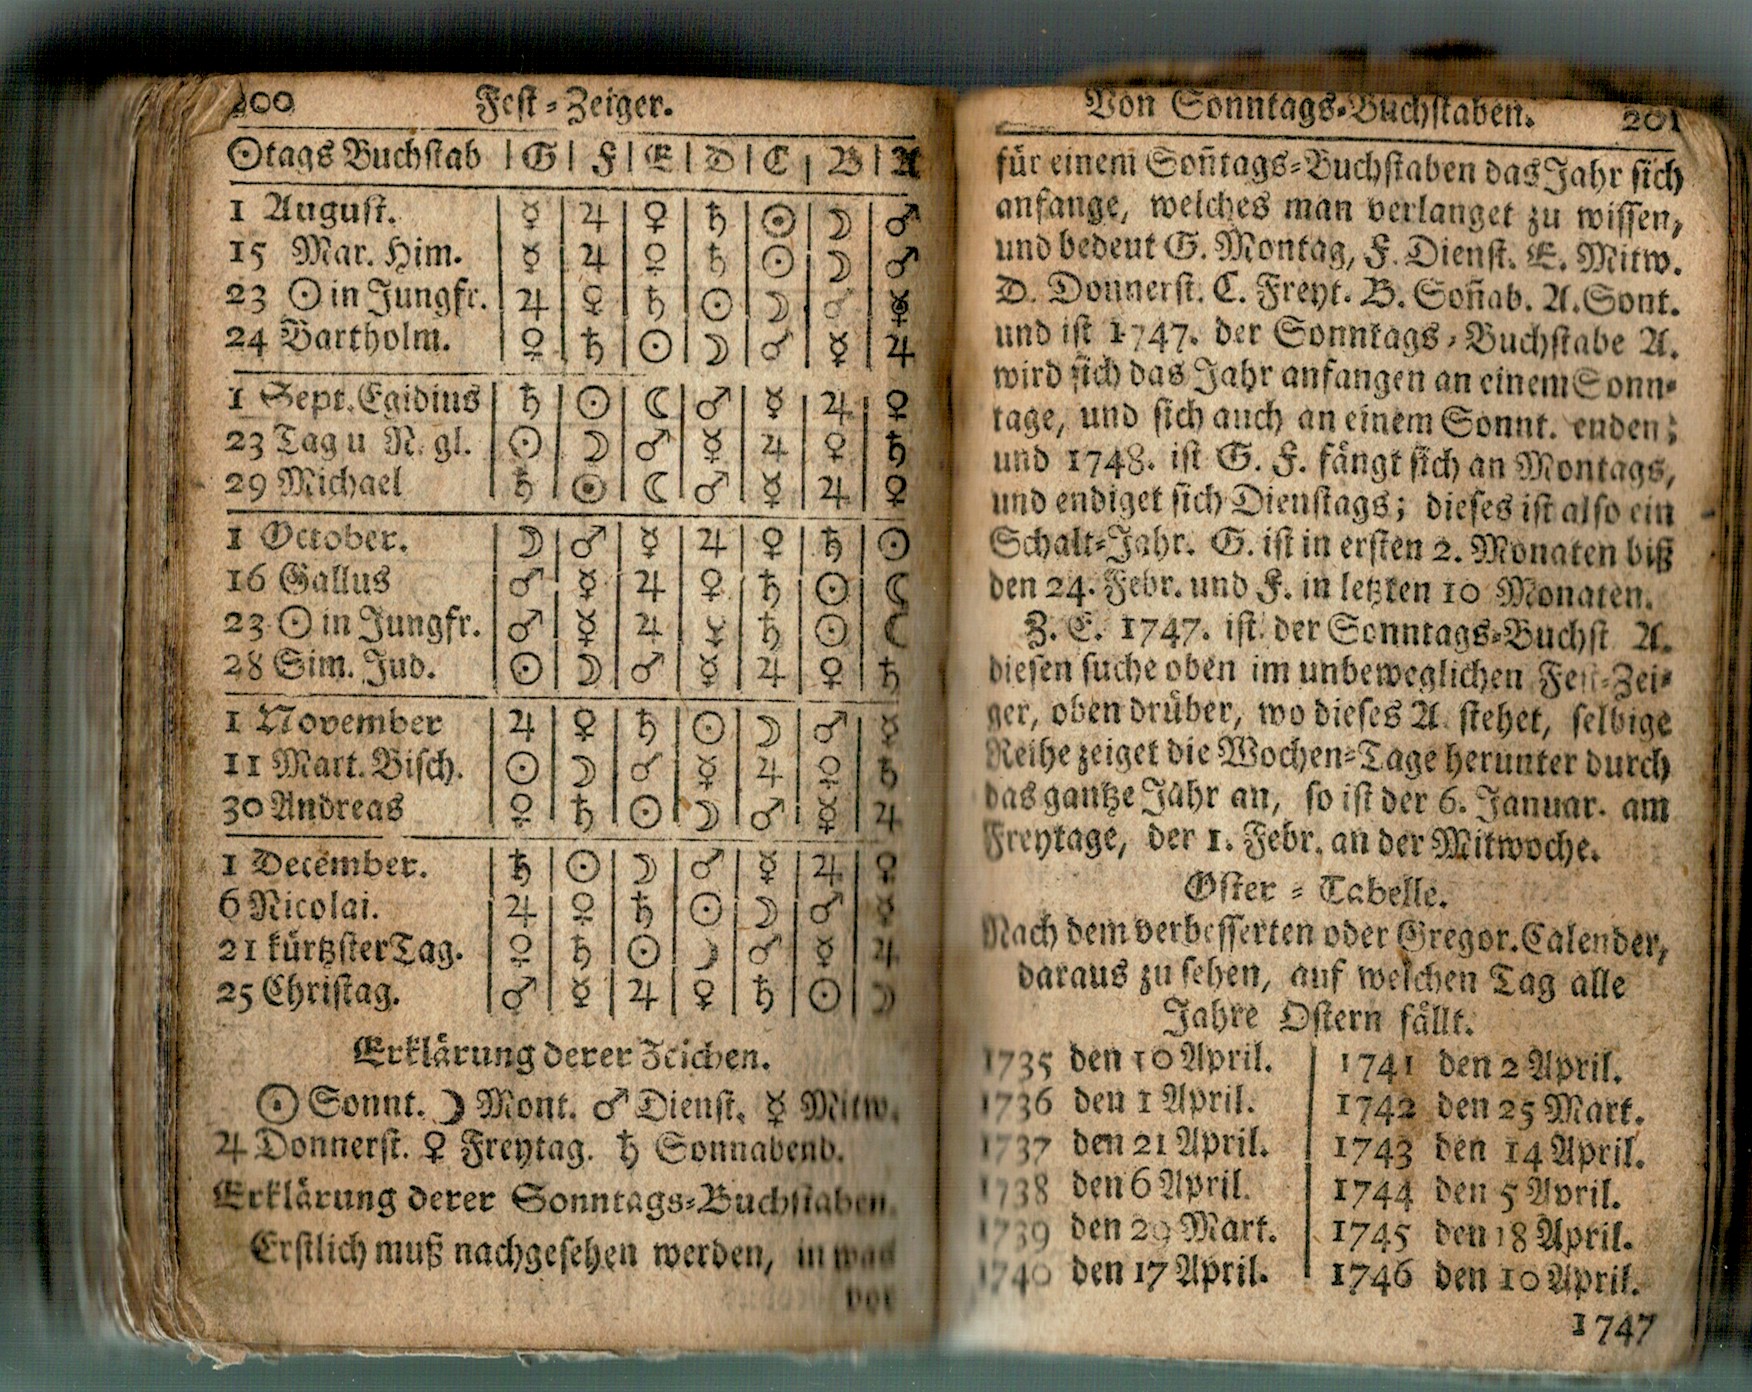 200 Fest-Zeiger.
☉tags Buchstab | G | F | E | D | C | B | A
1 August. | ☿ | ♃ | ♀ | ♄ | ☉ | ☽ | ♂
15 Mar. Him. | ☿ | ♃ | ♀ | ♄ | ☉ | ☽ | ♂
23 ☉ in Jungfr. | ♃ | ♀ | ♄ | ☉ | ☽ | ♂ | ☿
24 Bartholm. | ♀ | ♄ | ☉ | ☽ | ♂ | ☿ | ♃
1 Sept. Egidius | ♄ | ☉ | ☾ | ♂ | ☿ | ♃ | ♀
23 Tag u N. gl. | ☉ | ☽ | ♂ | ☿ | ♃ | ♀ | ♄
29 Michael | ♄ | ☉ | ☾ | ♂ | ☿ | ♃ | ♀
1 October. | ☽ | ♂ | ☿ | ♃ | ♀ | ♄ | ☉
16 Gallus | ♂ | ☿ | ♃ | ♀ | ♄ | ☉ | ☾
23 ☉ in Jungfr. | ♂ | ☿ | ♃ | ♀ | ♄ | ☉ | ☾
28 Sim. Jud. | ☉ | ☽ | ♂ | ☿ | ♃ | ♀ | ♄
1 November | ♃ | ♀ | ♄ | ☉ | ☽ | ♂ | ☿
11 Mart. Bisch. | ☉ | ☽ | ♂ | ☿ | ♃ | ♀ | ♄
30 Andreas | ♀ | ♄ | ☉ | ☽ | ♂ | ☿ | ♃
1 December. | ♄ | ☉ | ☽ | ♂ | ☿ | ♃ | ♀
6 Nicolai. | ♃ | ♀ | ♄ | ☉ | ☽ | ♂ | ☿
21 kürtzster Tag. | ♀ | ♄ | ☉ | ☽ | ♂ | ☿ | ♃
25 Christag. | ♂ | ☿ | ♃ | ♀ | ♄ | ☉ | ☽
Erklärung derer Zeichen.
☉ Sonnt. ☽ Mont. ♂ Dienst. ☿ Mitw.
♃ Donnerst. ♀ Freytag. ♄ Sonnabend.
Erklärung derer Sonntags-Buchstaben.
Erstlich muß nachgesehen werden, in was
vor
Von Sonntags-Buchstaben. 201
für einem Soñtags-Buchstaben das Jahr sich
anfange, welches man verlanget zu wissen,
und bedeut G. Montag, F. Dienst. E. Mitw.
D. Donnerst. C. Freyt. B. Soñab. A. Sont.
und ist 1747. der Sonntags-Buchstabe A.
wird sich das Jahr anfangen an einem Sonn-
tage, und sich auch an einem Sonnt. enden;
und 1748. ist G. F. fängt sich an Montags,
und endiget sich Dienstags; dieses ist also ein
Schalt-Jahr. G. ist in ersten 2. Monaten biß
den 24. Febr. und F. in letzten 10 Monaten.
Z. E. 1747. ist. der Sonntags-Buchst A.
diesen suche oben im unbeweglichen Fest-Zei-
ger, oben drüber, wo dieses A. stehet, selbige
Reihe zeiget die Wochen-Tage herunter durch
das gantze Jahr an, so ist der 6. Januar. am
Freytage, der 1. Febr. an der Mitwoche.
Oster-Tabelle.
Nach dem verbesserten oder Gregor. Calender,
daraus zu sehen, auf welchen Tag alle
Jahre Ostern fällt.
1735 den 10 April. | 1741 den 2 April.
1736 den 1 April. | 1742 den 25 Mart.
1737 den 21 April. | 1743 den 14 April.
1738 den 6 April. | 1744 den 5 April.
1739 den 29 Mart. | 1745 den 18 April.
1740 den 17 April. | 1746 den 10 April.
1747